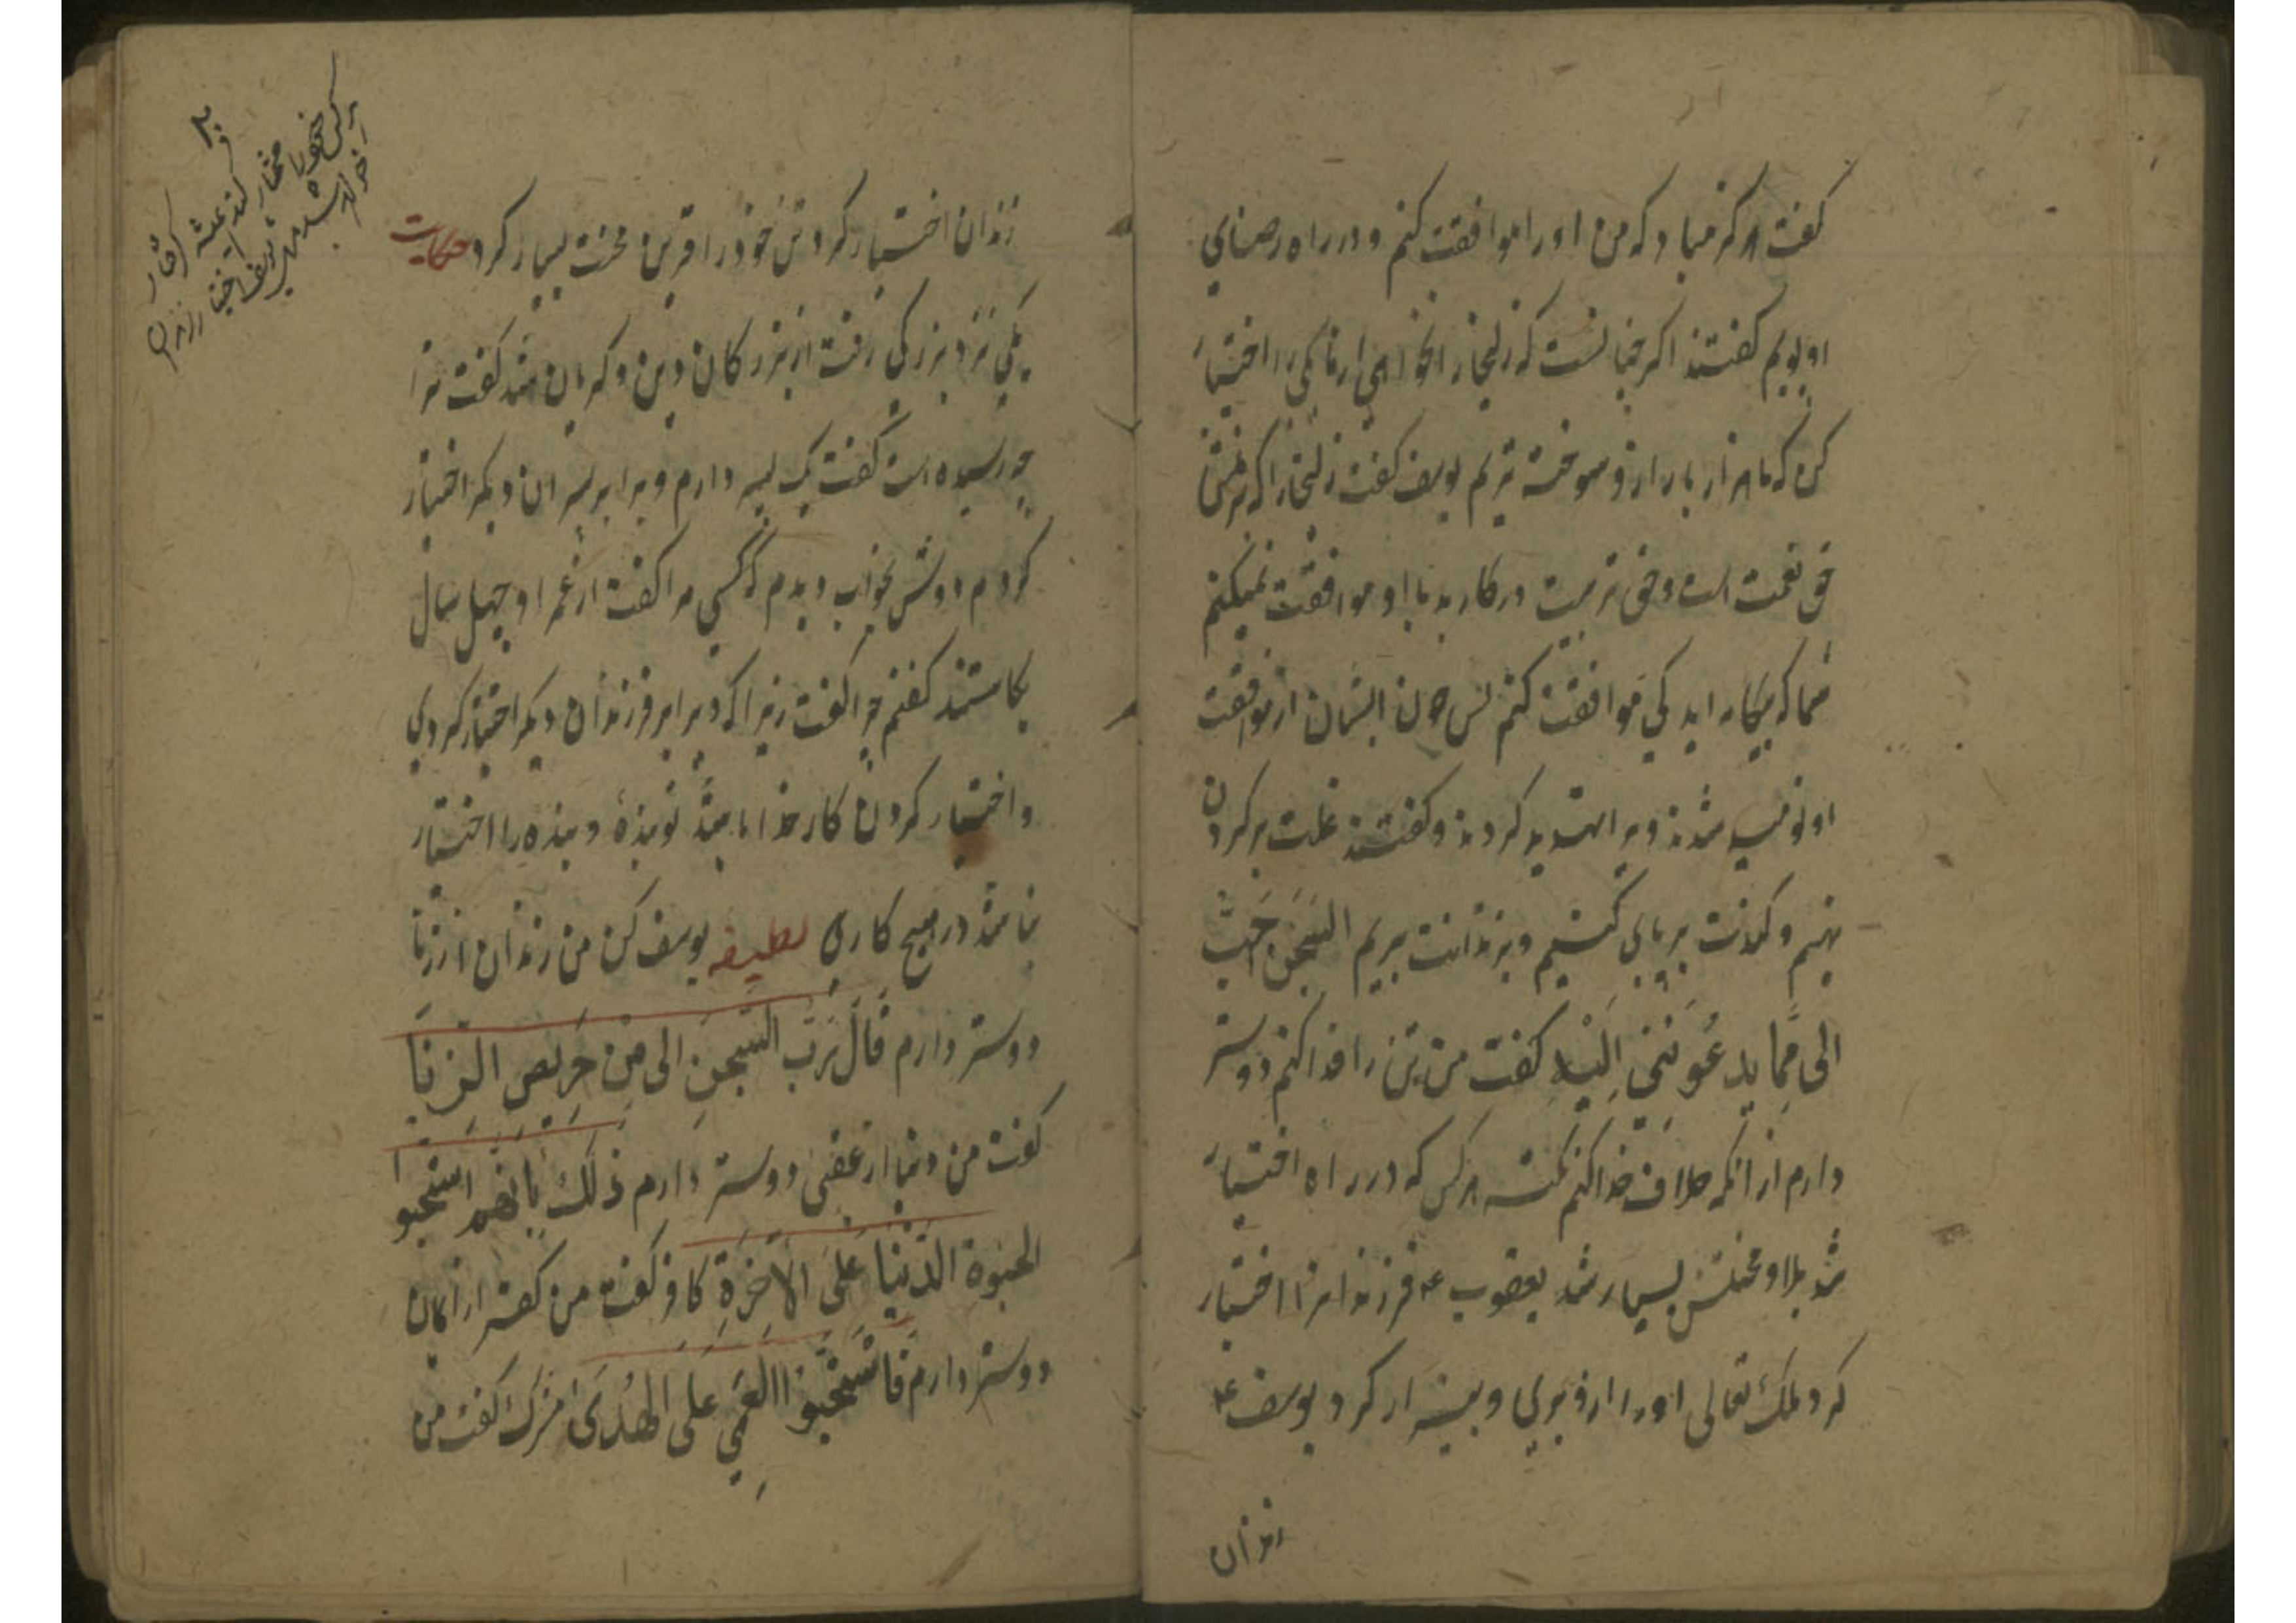 کفت هرکز مباد که من او را موافقت کنم و در راه رضای
او پویم کفتند اکر چنانست که زلیخا را نخواهی از ما یکی را اختیار
کن که ما هزار بار ازو سوخته تریم یوسف کفت زلیخا را که بر من
حق نعمت است و حق تربیت در کار بد با او موافقت نمیکنم
شما که بیکانه اید کی موافقت کنم پس چون ایشان از موافقت
او نومید شدند ویرا تهدید کردند و کفتند غلت بر کردن
نهیم و کندت بر پای کشیم و بزندانت بریم السِّجْنُ اَحَبُّ
الی مِمَّا یَدعُونَنِی اِلَیْهِ کفت من تن را فدا کنم دوستر
دارم از آنکه خلاف خدا کنم نکته هر کس که در راه اختیار
شد بلا و محنتش بسیار شد یعقوب ع فرزندانرا اختیار
کرد ملک تعالی او را ازو بری و بیزار کرد یوسف ع
زندان
زندان اختیار کرد تن خود را قرین محنت بسیار کرد حکایت
یکی نزد بزرکی رفت از بزرکان دین و کریان شد کفت ترا
چه رسیده است کفت یک پسر دارم و برابر پسران دیکر اختیار
کردم دوش بخواب دیدم که کسی مرا کفت از عمر او چهل سال
بکاستند کفتم چرا کفت زیرا که ویرا بر فرزندان دیکر اختیار کردی
و اختیار کردن کار خدا باشد تو بندهٔ و بنده را اختیار
نباشد در هیچ کاری لطیفه یوسف کن من زندان از زنا
دوستر دارم قَالَ رَبِّ السِّجْنِ الی مِنْ حَرِیص الزِنَا
کفت من دنیا از عقبی دوستر دارم ذلکَ بِاَنَّهُمُ استَحَبُّوا
الحیوة الدُّنْیَا عَلیَ الاخِرَةِ کافر کفت من کفر از ایمان
دوستر دارم فَاسْتَحَبُّوا العَمَی عَلَی الهُدَی مشرک کفت من
هر کس خود را مختار کند همیشه کرفتار
آخر شد یوسف اختیار زندان